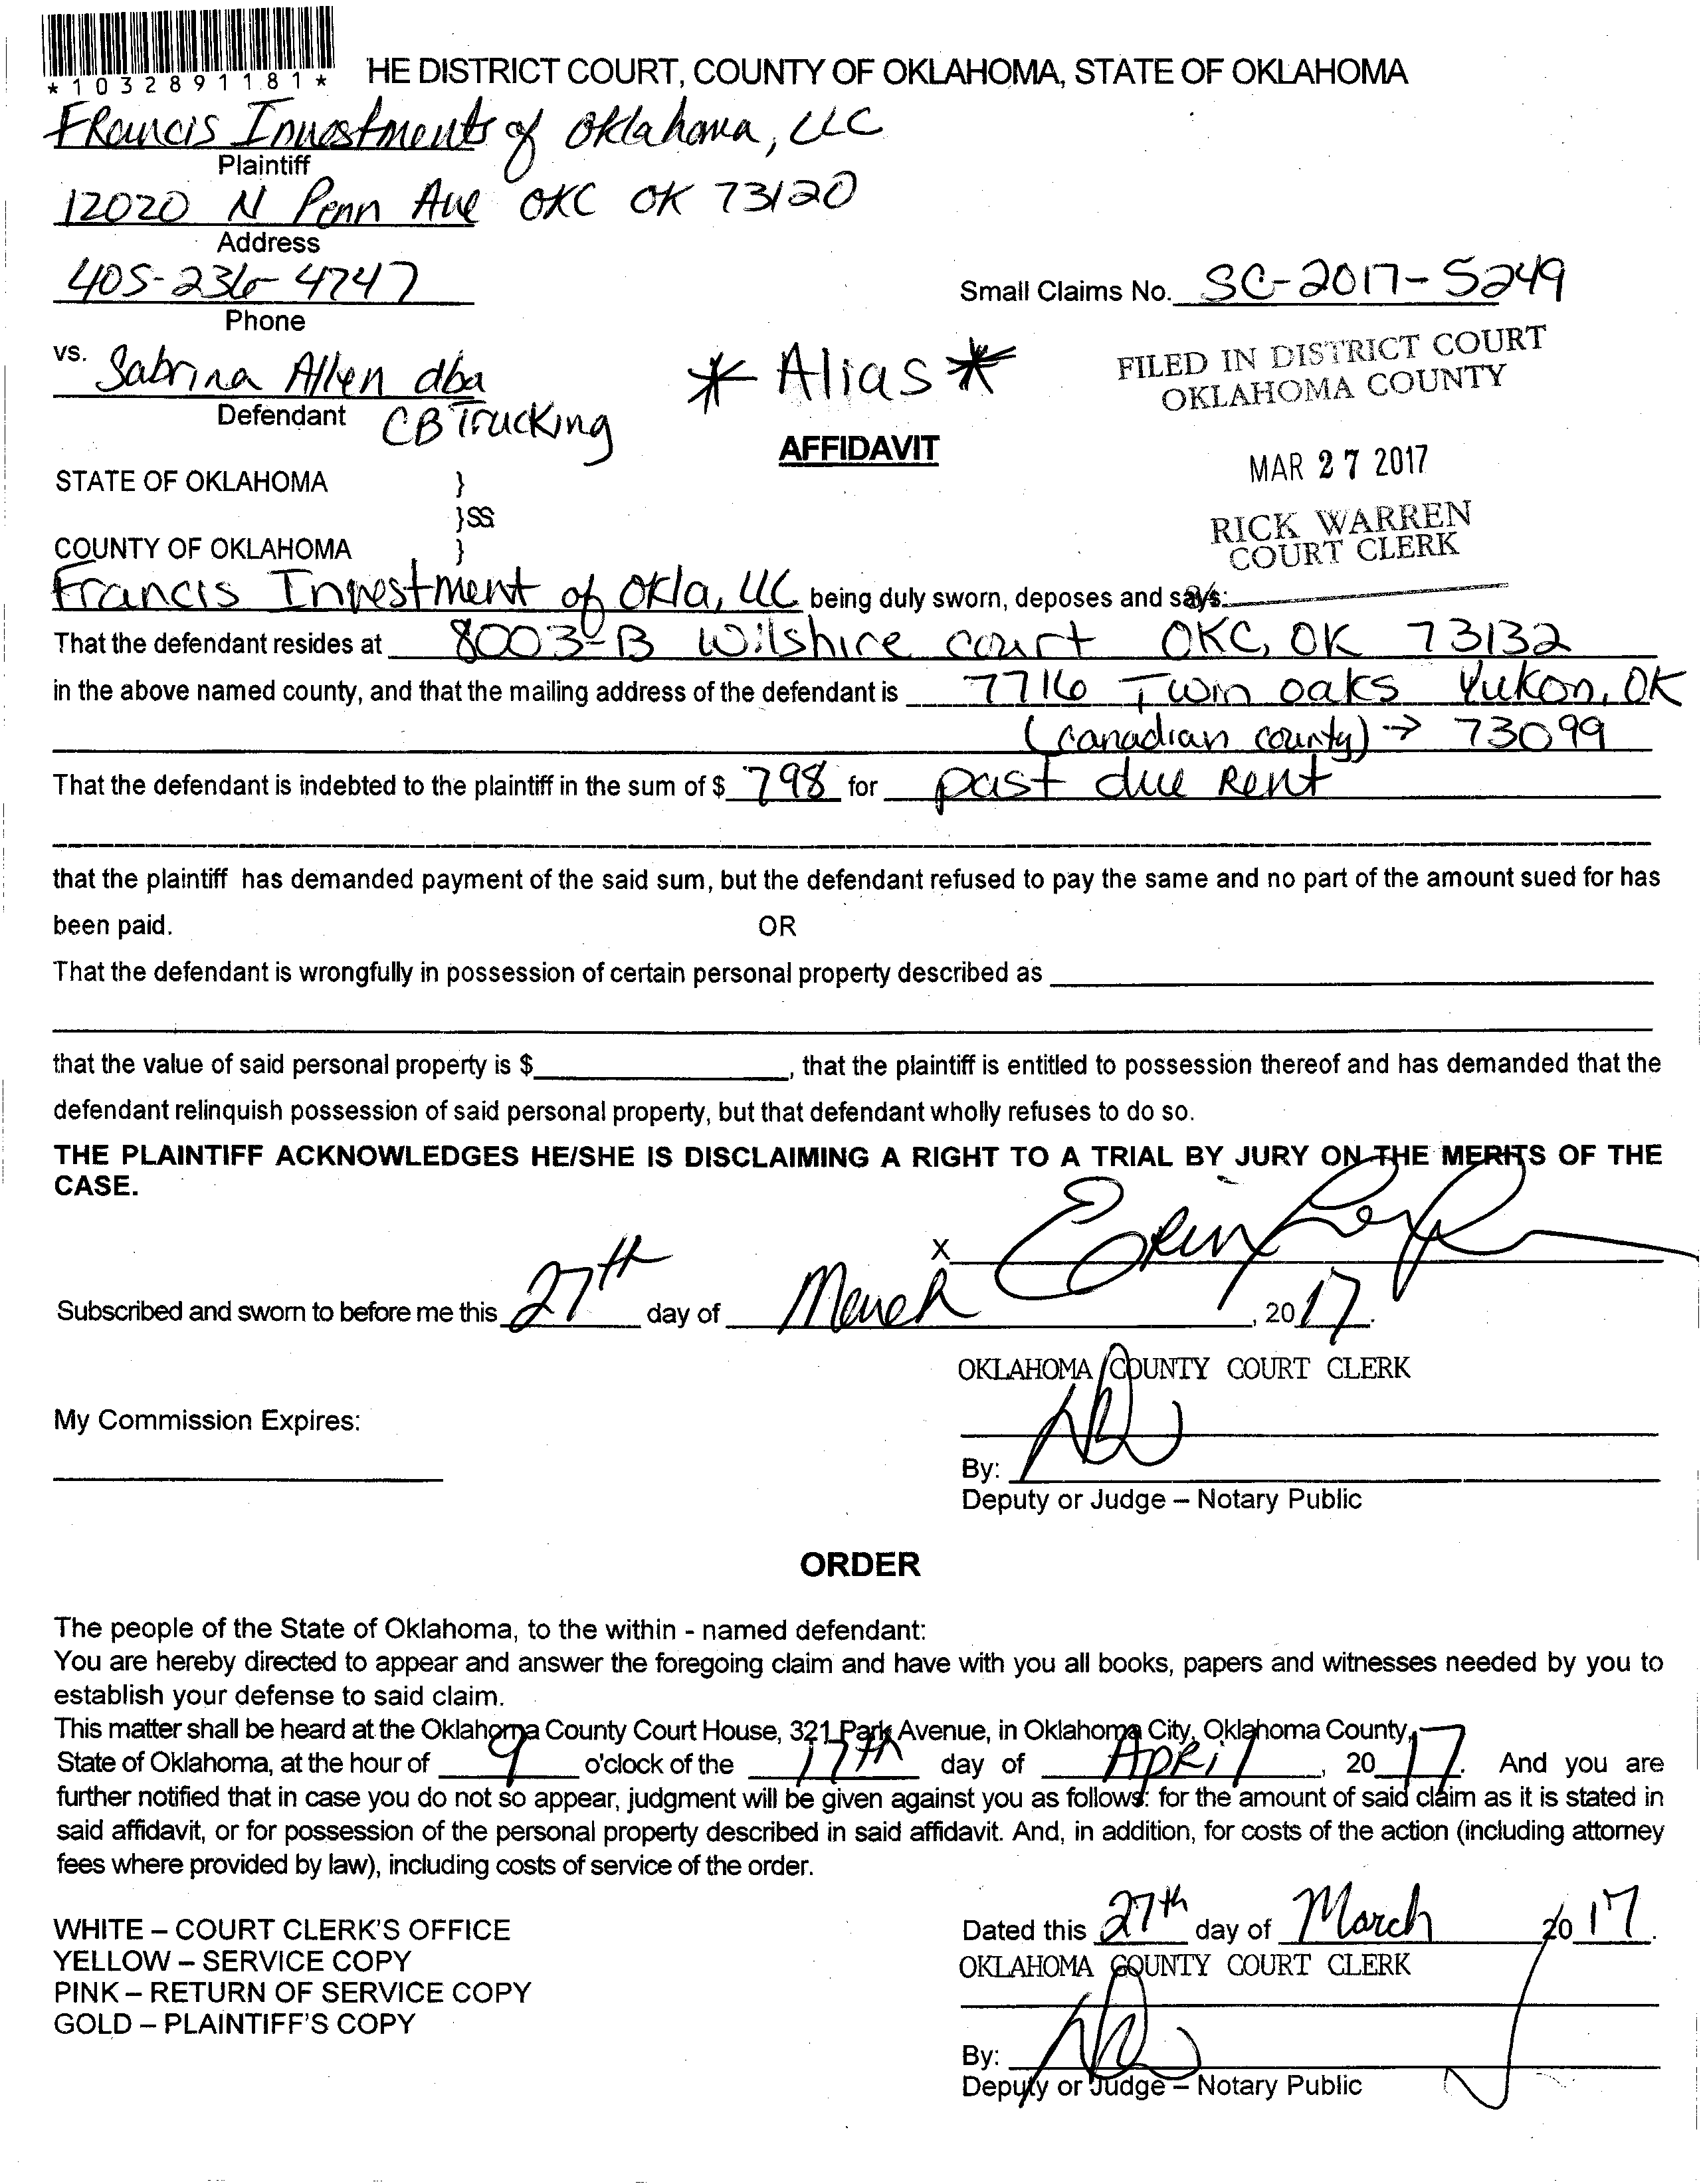 *1032891181*
HE DISTRICT COURT, COUNTY OF OKLAHOMA, STATE OF OKLAHOMA
Francis Investments of Oklahoma, LLC
Plaintiff
12020 N Penn Ave OKC OK 73120
Address
405-236-4747
Phone
Small Claims No. SC-2017-5249
vs. Sabrina Allen dba
Defendant CB Trucking
*Alias*
FILED IN DISTRICT COURT
OKLAHOMA COUNTY
AFFIDAVIT
MAR 27 2017
STATE OF OKLAHOMA }
}SS
RICK WARREN
COURT CLERK
COUNTY OF OKLAHOMA }
Francis Investment of Okla, LLC being duly sworn, deposes and says:
That the defendant resides at 8003-B Wilshire court OKC, OK 73132
in the above named county, and that the mailing address of the defendant is 7716 Twin oaks Yukon, OK
(canadian county) → 73099
That the defendant is indebted to the plaintiff in the sum of $ 798 for past due Rent
that the plaintiff has demanded payment of the said sum, but the defendant refused to pay the same and no part of the amount sued for has
been paid. OR
That the defendant is wrongfully in possession of certain personal property described as
that the value of said personal property is $ , that the plaintiff is entitled to possession thereof and has demanded that the
defendant relinquish possession of said personal property, but that defendant wholly refuses to do so.
THE PLAINTIFF ACKNOWLEDGES HE/SHE IS DISCLAIMING A RIGHT TO A TRIAL BY JURY ON THE MERITS OF THE
CASE.
X Erin
Subscribed and sworn to before me this 27th day of March , 2017.
OKLAHOMA COUNTY COURT CLERK
My Commission Expires:
By:
Deputy or Judge – Notary Public
ORDER
The people of the State of Oklahoma, to the within - named defendant:
You are hereby directed to appear and answer the foregoing claim and have with you all books, papers and witnesses needed by you to
establish your defense to said claim.
This matter shall be heard at the Oklahoma County Court House, 321 Park Avenue, in Oklahoma City, Oklahoma County,
State of Oklahoma, at the hour of 9 o'clock of the 17th day of April , 20 17. And you are
further notified that in case you do not so appear, judgment will be given against you as follows: for the amount of said claim as it is stated in
said affidavit, or for possession of the personal property described in said affidavit. And, in addition, for costs of the action (including attorney
fees where provided by law), including costs of service of the order.
WHITE – COURT CLERK'S OFFICE
YELLOW – SERVICE COPY
PINK – RETURN OF SERVICE COPY
GOLD – PLAINTIFF'S COPY
Dated this 27th day of March 20 17.
OKLAHOMA COUNTY COURT CLERK
By:
Deputy or Judge – Notary Public